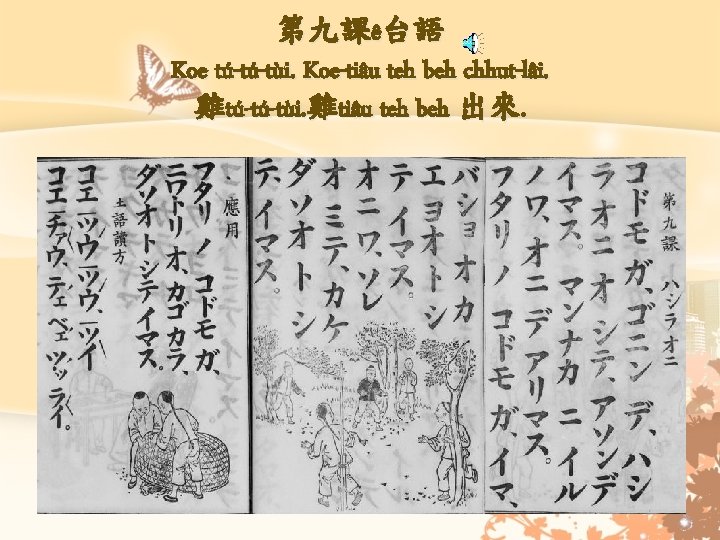 第九課ê台語
Koe tú-tú-tùi. Koe-tiâu teh beh chhut-lâi.
雞tú-tú-tùi.雞tiâu teh beh 出來.
第九課 ハシラオニ
コドモ ガ、ゴニン デ、ハシ
ラオニ オ シテ、アソンデ
イマス。マンナカ ニ イル
ノワ、オニ デ アリマス。
フタリ ノ コドモ ガ、イマ、
バショ オ カ
エヨオ ト シ
テ イマス。
オニ ワ、ソレ
オ ミテ、カケ
ダソオ ト シ
テ、イマス。
・應用
フタリ ノ コドモ ガ、
ニワトリ オ、カゴ カラ、
ダソオ トシテ イマス。
土語讀方
コエ ツウ ツウ、ツイ
コエ チァウ、テェ ベェ ツッ ライ。